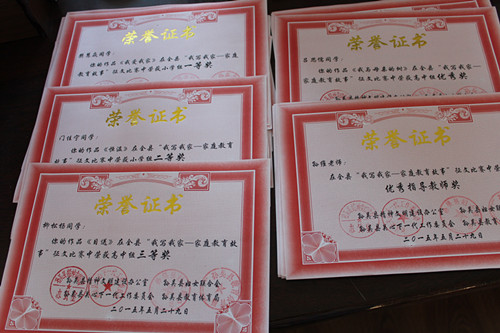 荣誉证书
同学:
你的作品《我爱我家》在全县“我写我家—家庭教
育故事”征文比赛中荣获小学组一等奖
荣誉证书
同学:
你的作品 在全县“我写我家—家庭教
育故事”征文比赛中荣获高中组优秀奖
荣誉证书
同学:
你的作品 在全县“我写我家—家庭教育
故事”征文比赛中荣获小学组二等奖
荣誉证书
老师:
在全县“我写我家—家庭教育故事”征文比赛中荣获
优秀指导教师奖
县精神文明建设办公室 县妇女联合会
县关心下一代工作委员会 县教育体育局
二〇一五年五月二十九日
荣誉证书
柳松杨同学:
你的作品《目送》在全县“我写我家—家庭教育故
事”征文比赛中荣获高中组三等奖
县精神文明建设办公室 县妇女联合会
县关心下一代工作委员会 县教育体育局
二〇一五年五月二十九日